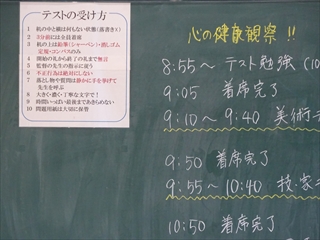 テストの受け方
1 机の中と横は何もない状態(落書き×)
2 5分前には全員着席
3 机の上は鉛筆(シャーペン)・消しゴム
定規・コンパスのみ
4 開始の礼から終了の礼まで無言
5 監督の先生の指示に従う
6 不正行為は絶対にしない
7 落とし物や質問は静かに手を挙げて
先生を呼ぶ
8 大きく・濃く・丁寧な文字で!
9 時間いっぱい最後まであきらめない
10 問題用紙は大切に保管
心の健康観察!!
8:55～ テスト勉強(10
9:05 着席完了
9:10～9:40 美術テ
9:50 着席完了
9:55～10:40 技・家
10:50 着席完了